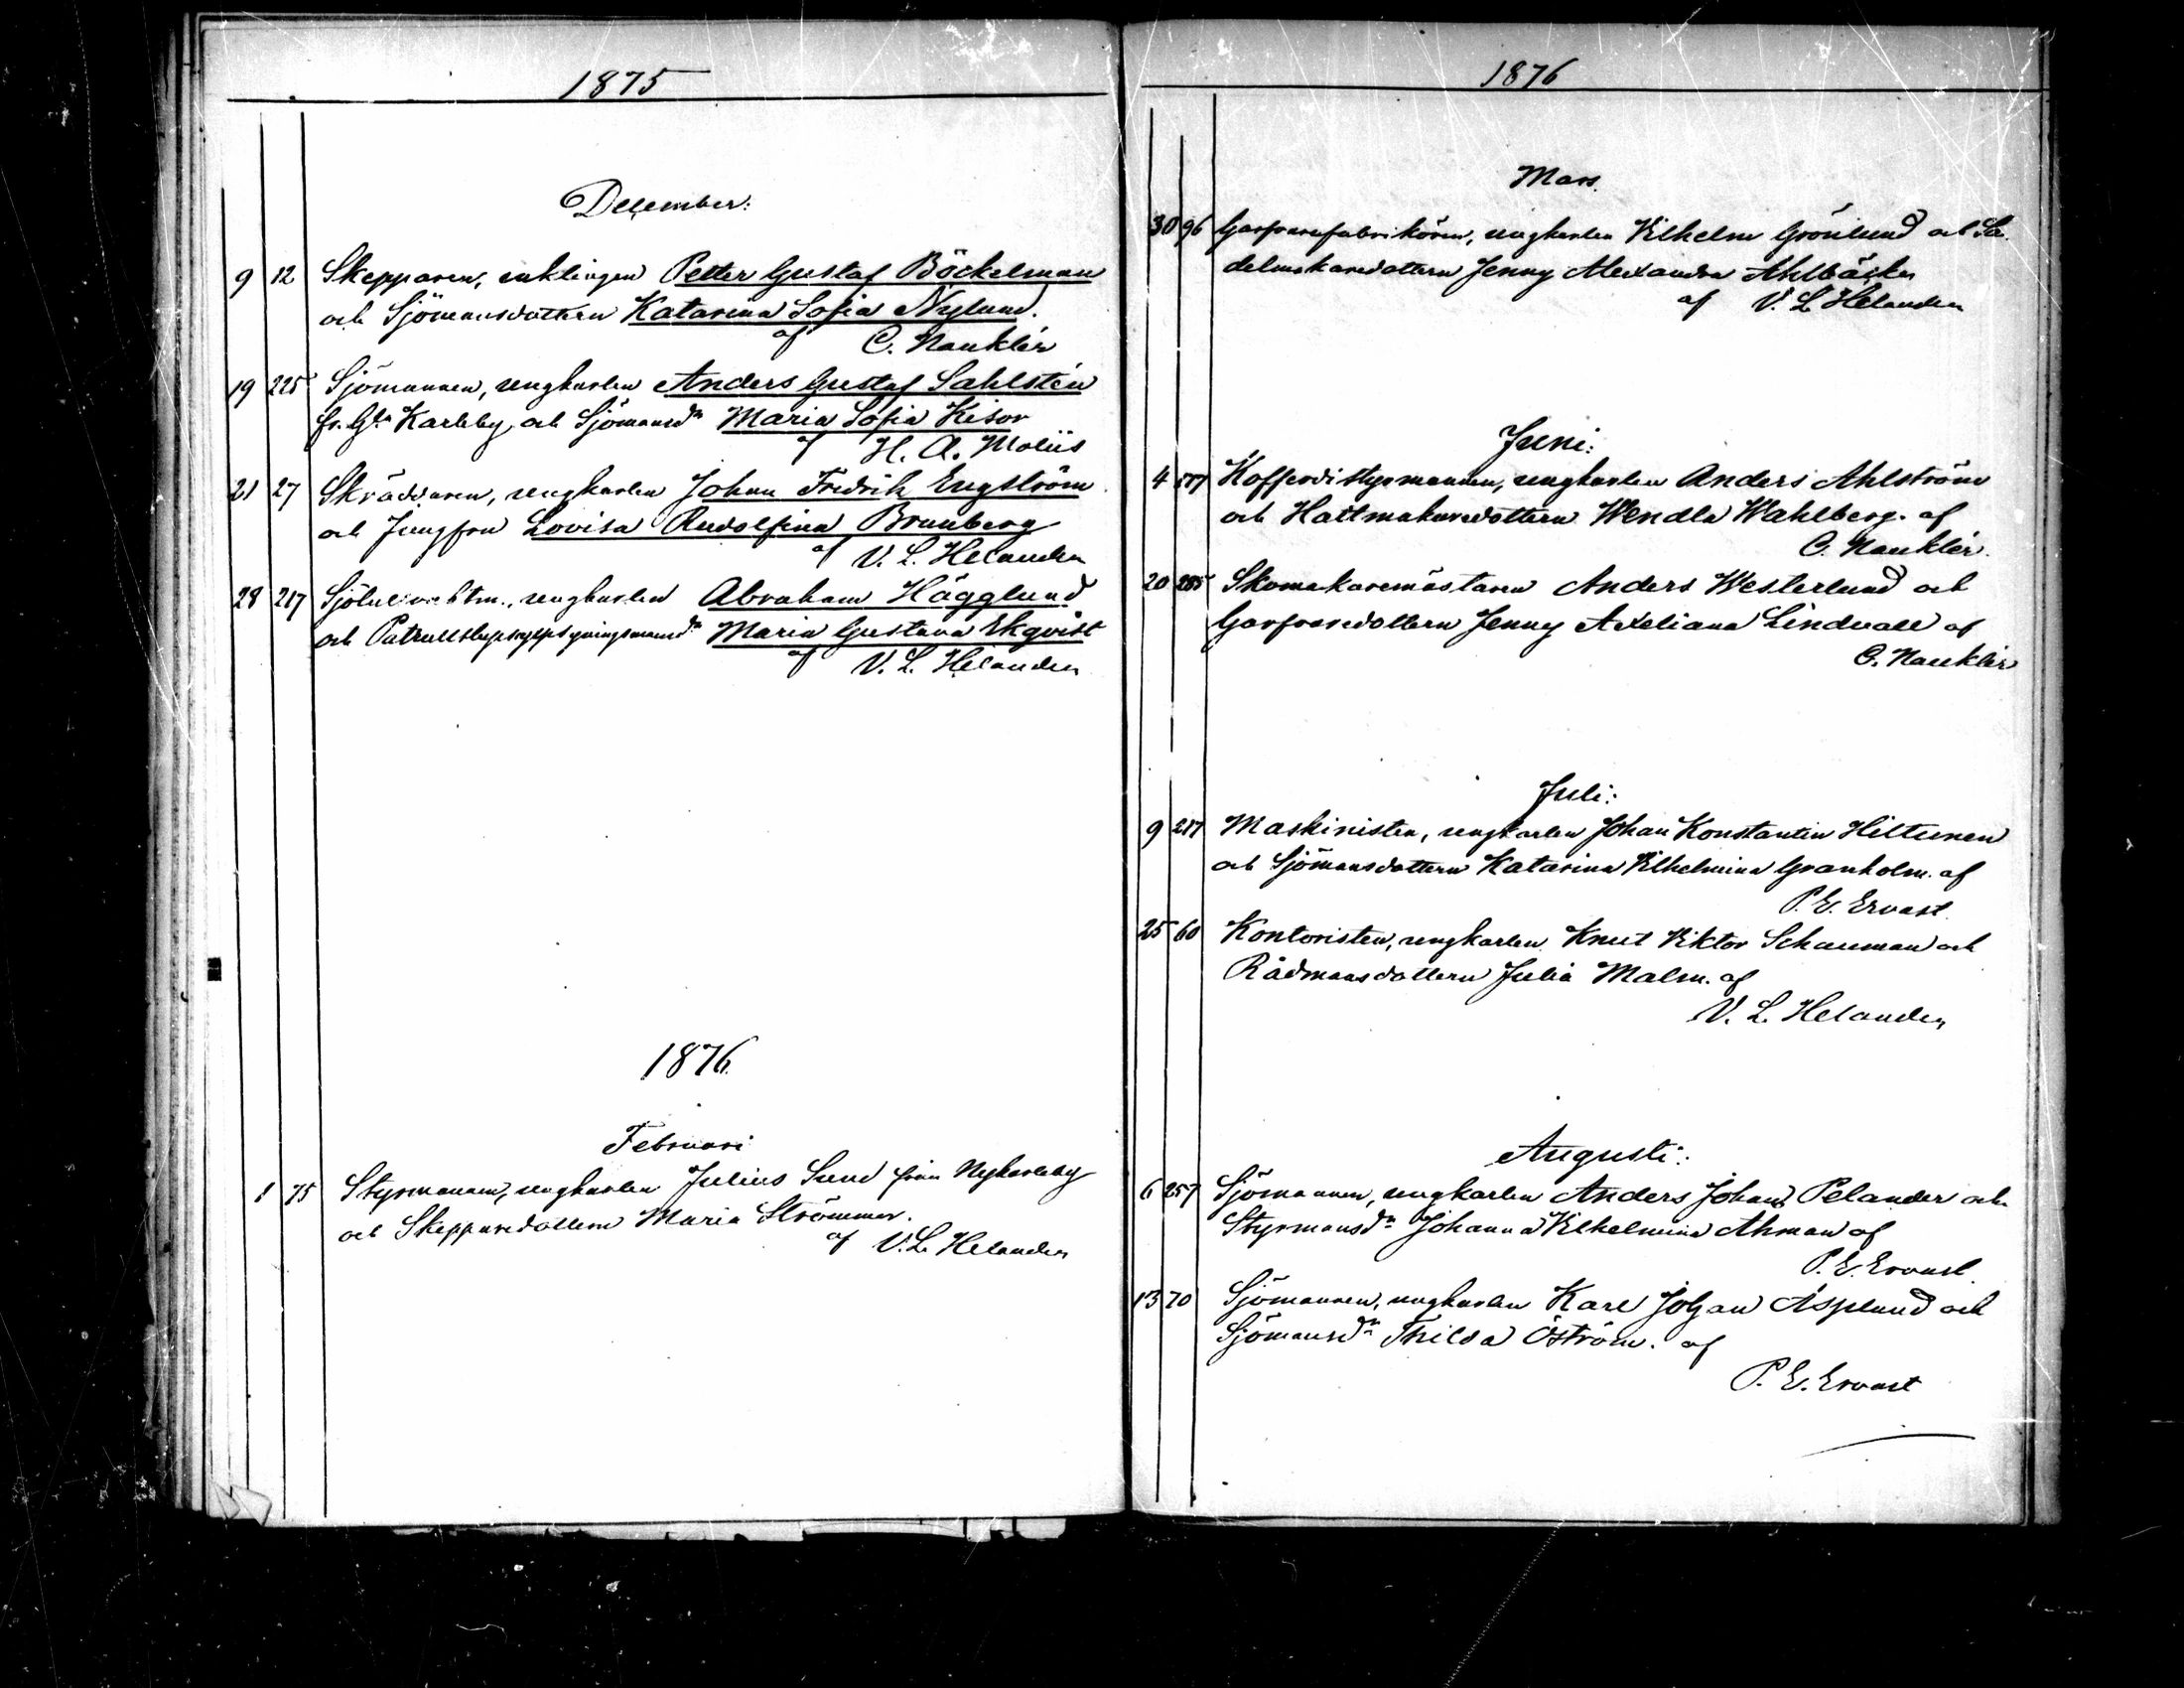 1875
December:
9 12 Skepparen, enklingen Petter Gustaf Böckelman
och Sjömansdottren Katarina Sofia Nylund.
af C. Nauklér
19 225 Sjömannen, ungkarlen Anders Gustaf Sahlstén
fr. Gla Karleby, och Sjömansdn Maria Sofia Kisor
af H. A. Moliis
21 27 Skräddaren, ungkarlen Johan Fredrik Engström
och Jungfru Lovisa Rudolfina Brunberg
af V. L. Helander
28 217 ungkarlen Abraham Hägglund
och Maria Gustava Ekqvist
af V. L. Helander
1876.
Februari
1 75 Styrmannen, ungkarlen Julius Sund från Nykarleby
och Skepparedottern Maria Strömmer.
af V. L. Helander
1876
Mars.
30 96 Garfvarefabrikören, ungkarlen Vilhelm Grönlund och Sa-
delmakaredottern Jenny Alexandra Ahlbäck
af V. L. Helander
Juni:
4 177 Kofferdistyrmannen, ungkarlen Anders Ahlström
och Hattmakaredottern Wendla Wahlberg. af
C. Nauklér.
20 285 Skomakaremästaren Anders Westerlund och
Garfvaredottern Jenny Axeliana Lindvall af
C. Nauklér
Juli:
9 217 Maskinisten, ungkarlen Johan Konstantin Hiltunen
och Sjömansdottern Katarina Vilhelmina Granholm. af
P. E. Ervast.
25 60 Kontoristen, ungkarlen Knut Viktor Schauman och
Rådmansdottern Julia Malm. af
V. L. Helander
Augusti:
6 257 Sjömannen, ungkarlen Anders Johans Pelander och
Styrmansdn Johanna Vilhelmina Åhman af
P. E. Ervast.
13 70 Sjömannen, ungkarlen Karl Johan Asplund och
Sjömansdn Thilda Öström. af
P. E. Ervast